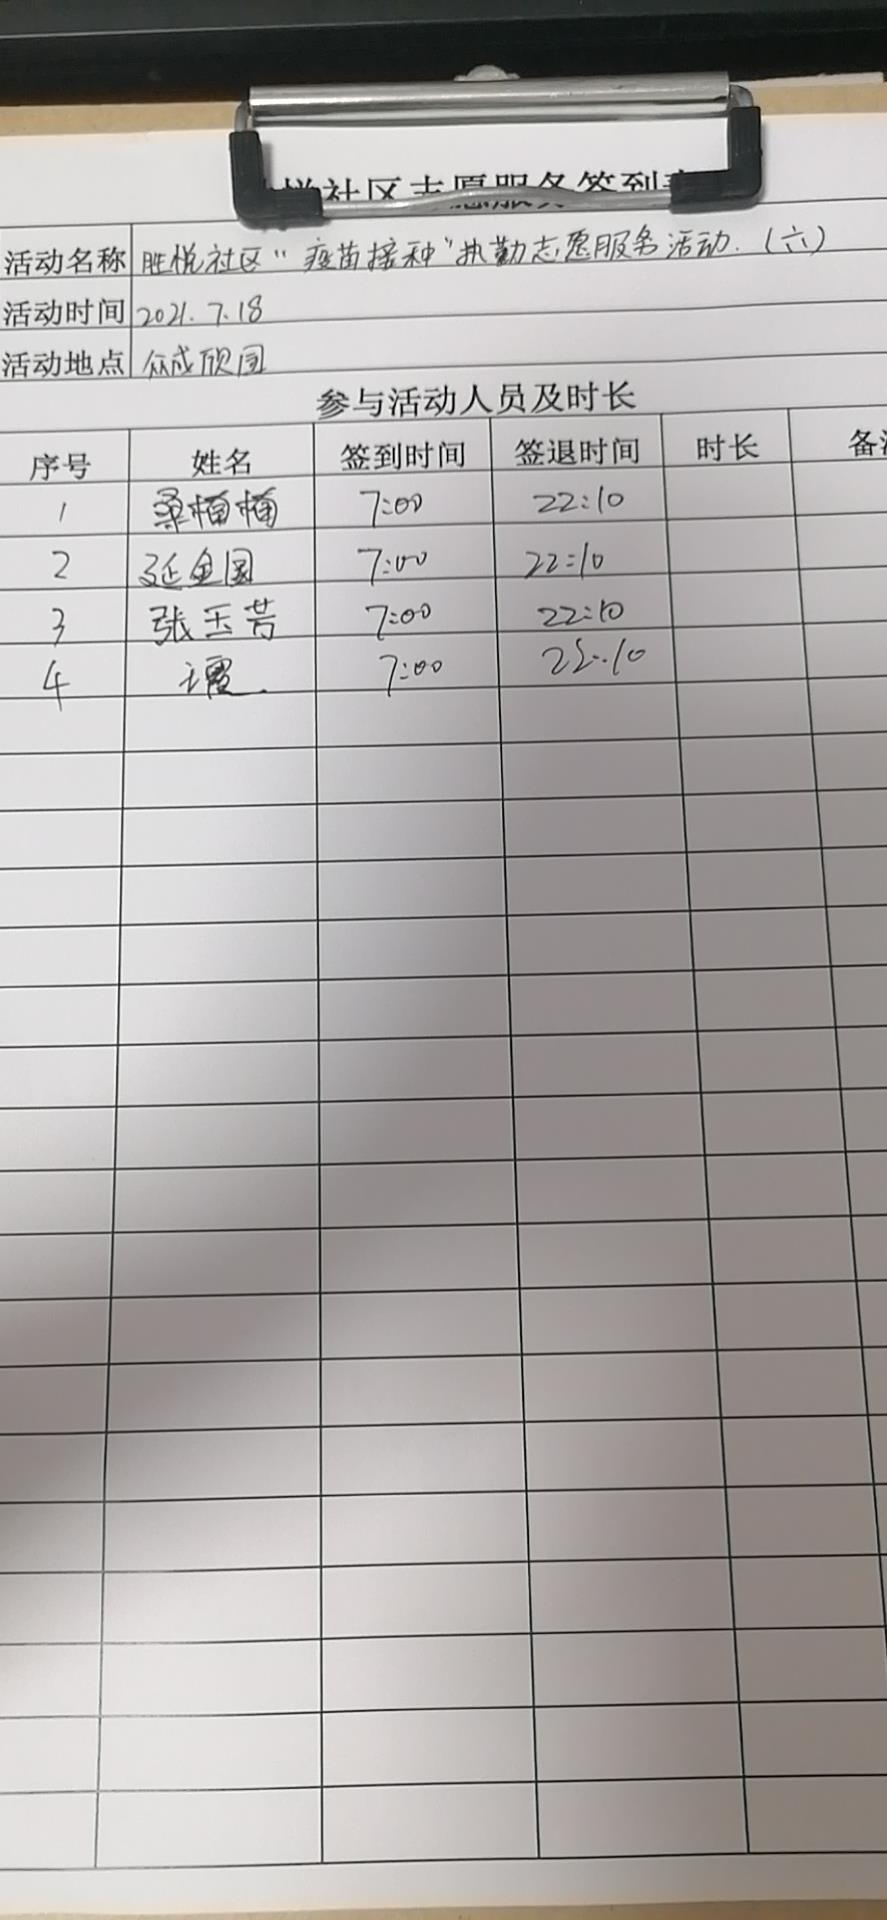 社区志愿服务签到表
活动名称 胜悦社区“疫苗接种”执勤志愿服务活动.(六)
活动时间 2021.7.18
活动地点 众成欣园
参与活动人员及时长
序号 姓名 签到时间 签退时间 时长 备注
1 桑楠楠 7:00 22:10
2 延金国 7:00 22:10
3 张玉芳 7:00 22:10
4 7:00 22:10